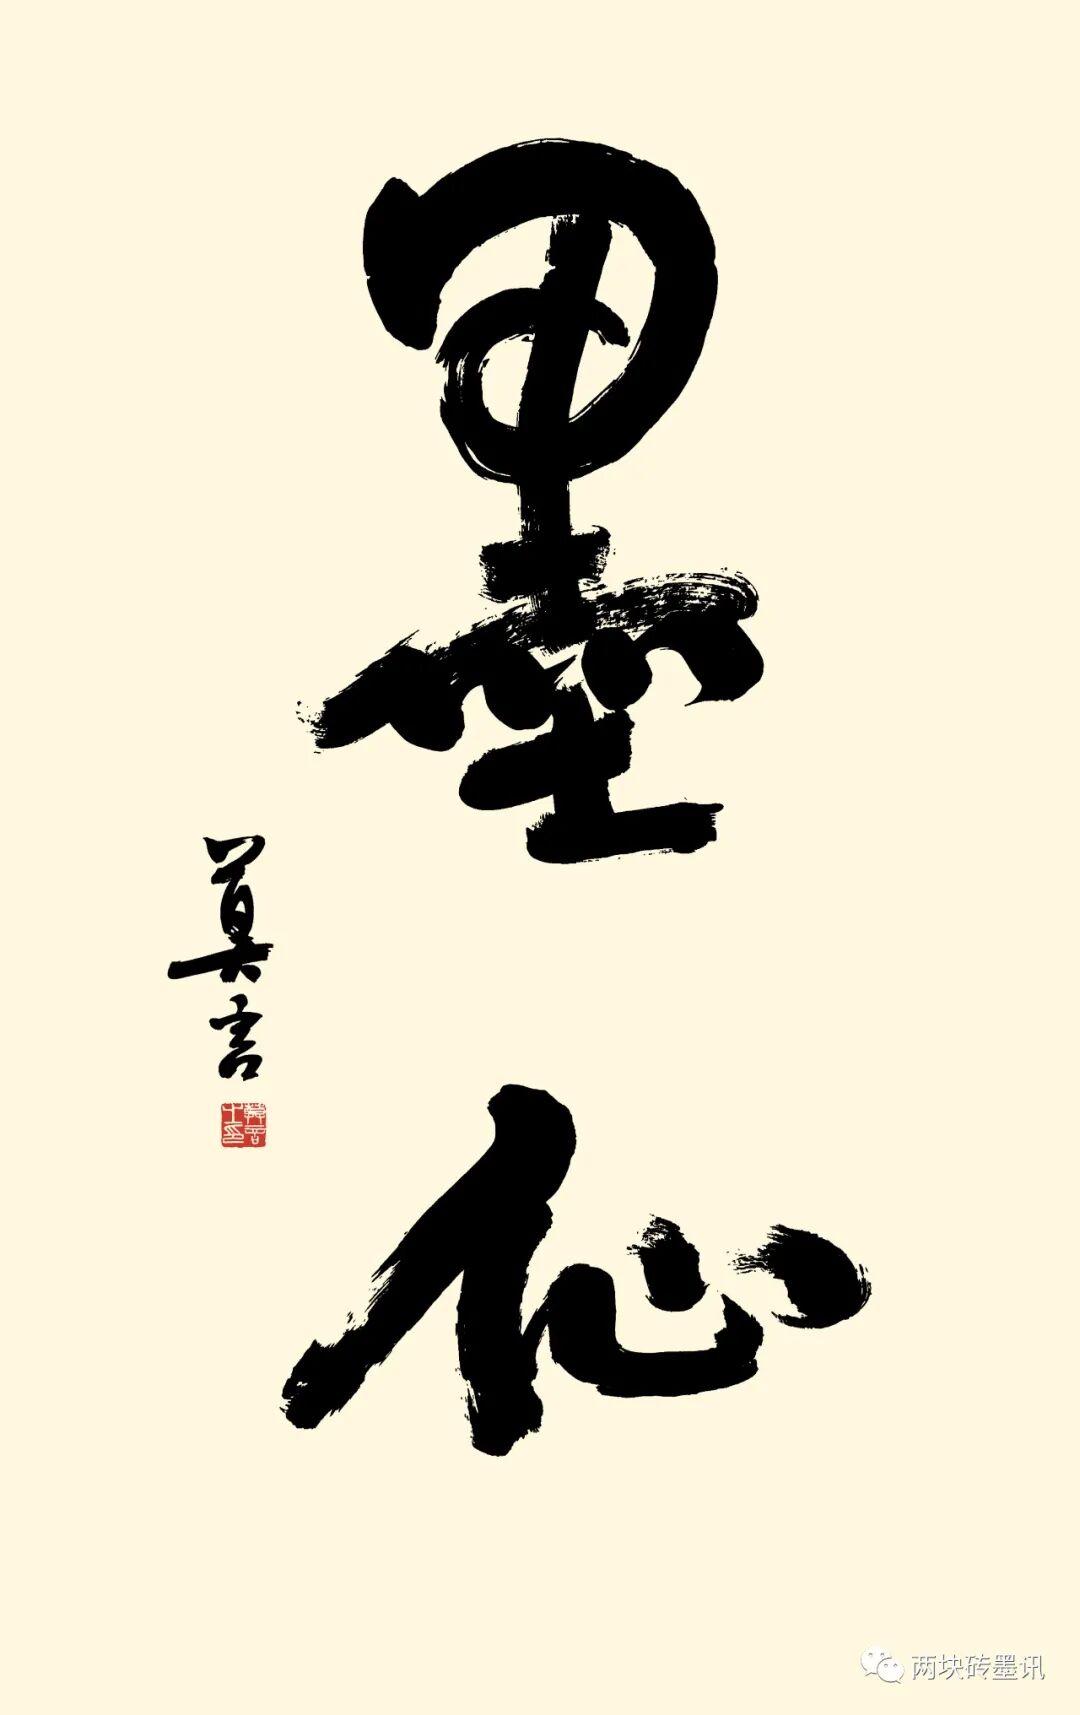 墨仙
莫言
两块砖墨讯